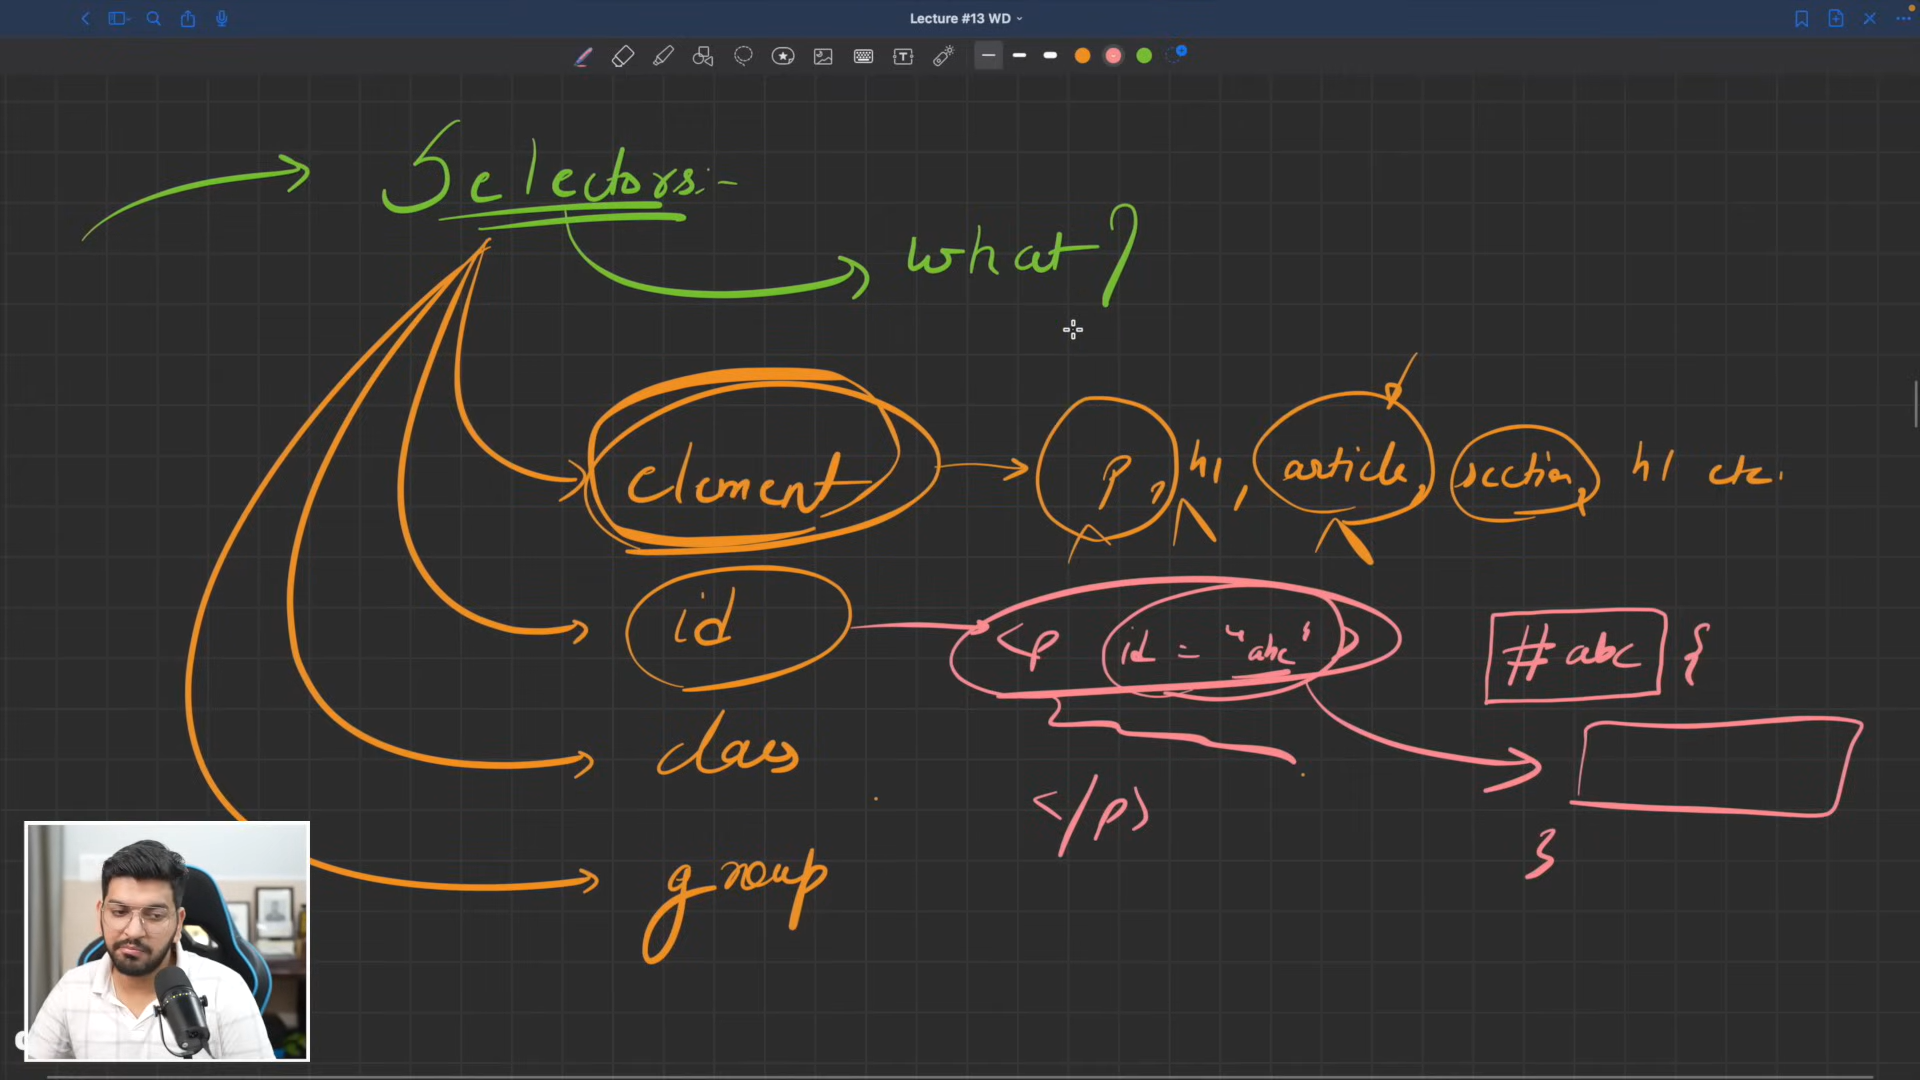 Lecture #13 WD
Selectors:-
what?
element
p, h1, article, section, h1 etc.
id
<p id = "abc" >
#abc {
class
</p>
}
group